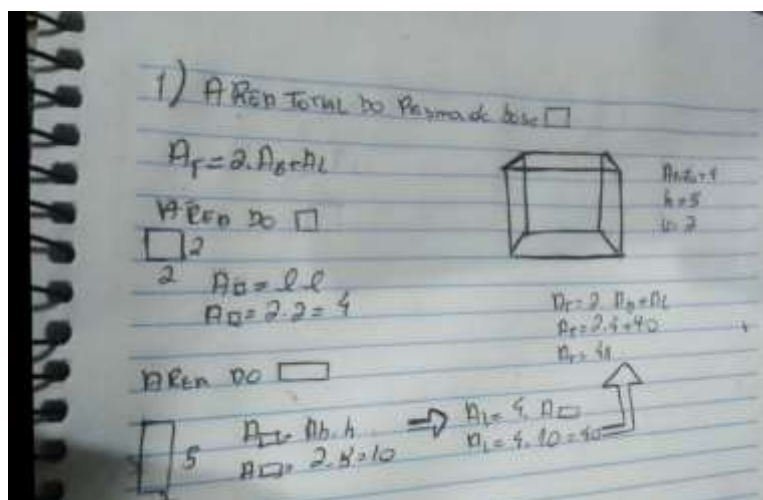 1) AREA TOTAL DO PRisma de base □
A_T = 2.A_B + A_L
AREA DO □
2
2
A□ = l.l
A□ = 2.2 = 4
AREA DO ▭
5
A▭ = Ab.h
A▭ = 2.5 = 10
⇒ A_L = 4. A▭
A_L = 4. 10 = 40
h = 5
A_T = 2. A_B + A_L
A_T = 2.4 + 40
A_T = 48